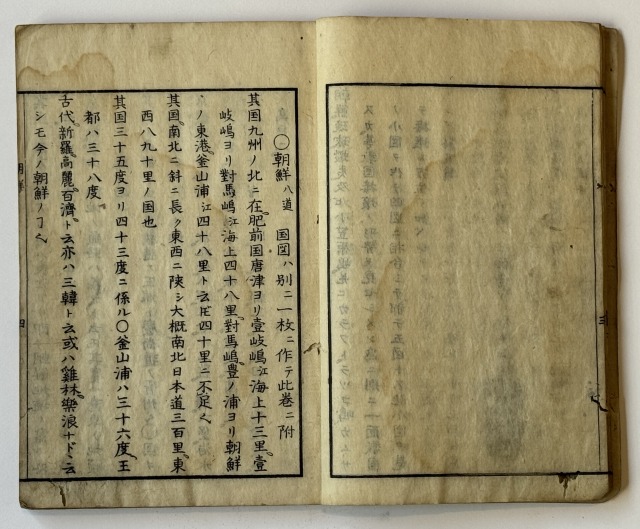 〇朝鮮八道 国図ハ別ニ一枚ニ作テ此巻ニ附
其国九州ノ北ニ在肥前国唐津ヨリ壹岐嶋江海上十三里壹
岐嶋ヨリ對馬嶋江海上四十八里對馬嶋豊ノ浦ヨリ朝鮮
ノ東港釜山浦江四十八里ト云𪜈四十里ニ不足
其国南北ニ斜ニ長ク東西ニ陜シ大概南北日本道三百里東
西八九十里ノ国也
其国三十五度ヨリ四十三度ニ係ル〇釜山浦ハ三十六度王
都ハ三十八度
古代新羅高麗百濟ト云亦ハ三韓ト云或ハ雞林樂浪ナドト云
シモ今ノ朝鮮ノ
朝鮮
四
三